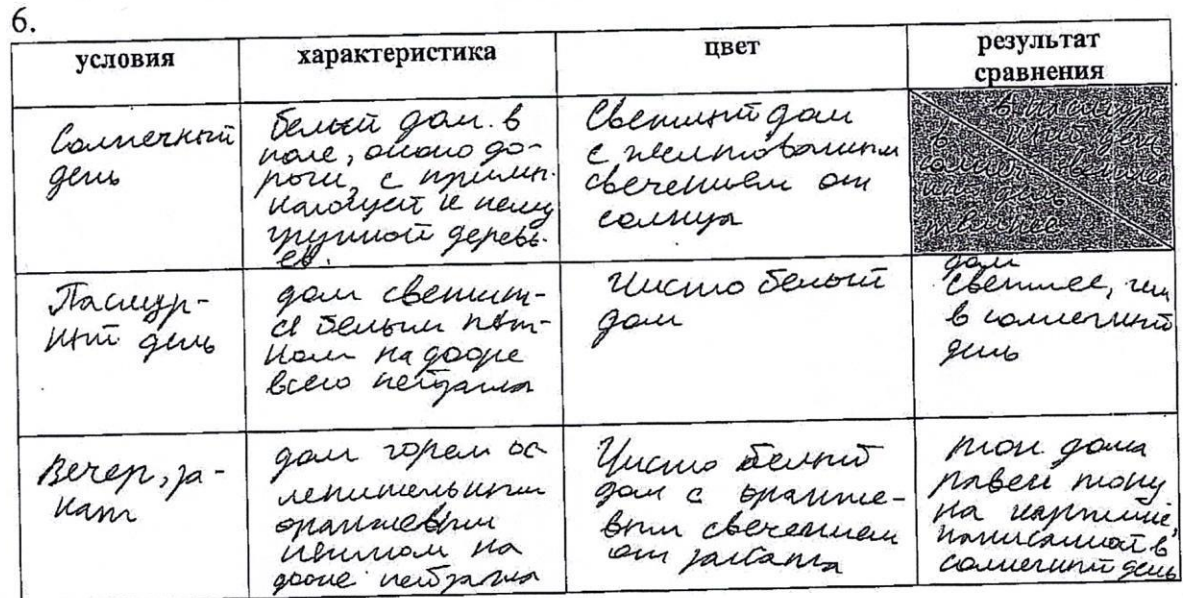 6.
условия
характеристика
цвет
результат
сравнения
Солнечный
день
белый дом. в
поле, около до-
роги, с примы-
к нему
группой деревь-
ев.
Светлый дом
с желтоватым
свечением от
солнца
в пасмур
день
светлее
день
темнее
Пасмур-
ный день
дом светит-
ся белым пят-
ном на фоне
всего пейзажа
Чисто белый
дом
дом
светлее, чем
в солнечный
день
Вечер, за-
кат
дом горел ос
лепительным
оранжевым
пятном на
фоне пейзажа
Чисто белый
дом с оранже-
вым свечением
от заката
тон дома
равен тону
на картине,
написанной в
солнечный день